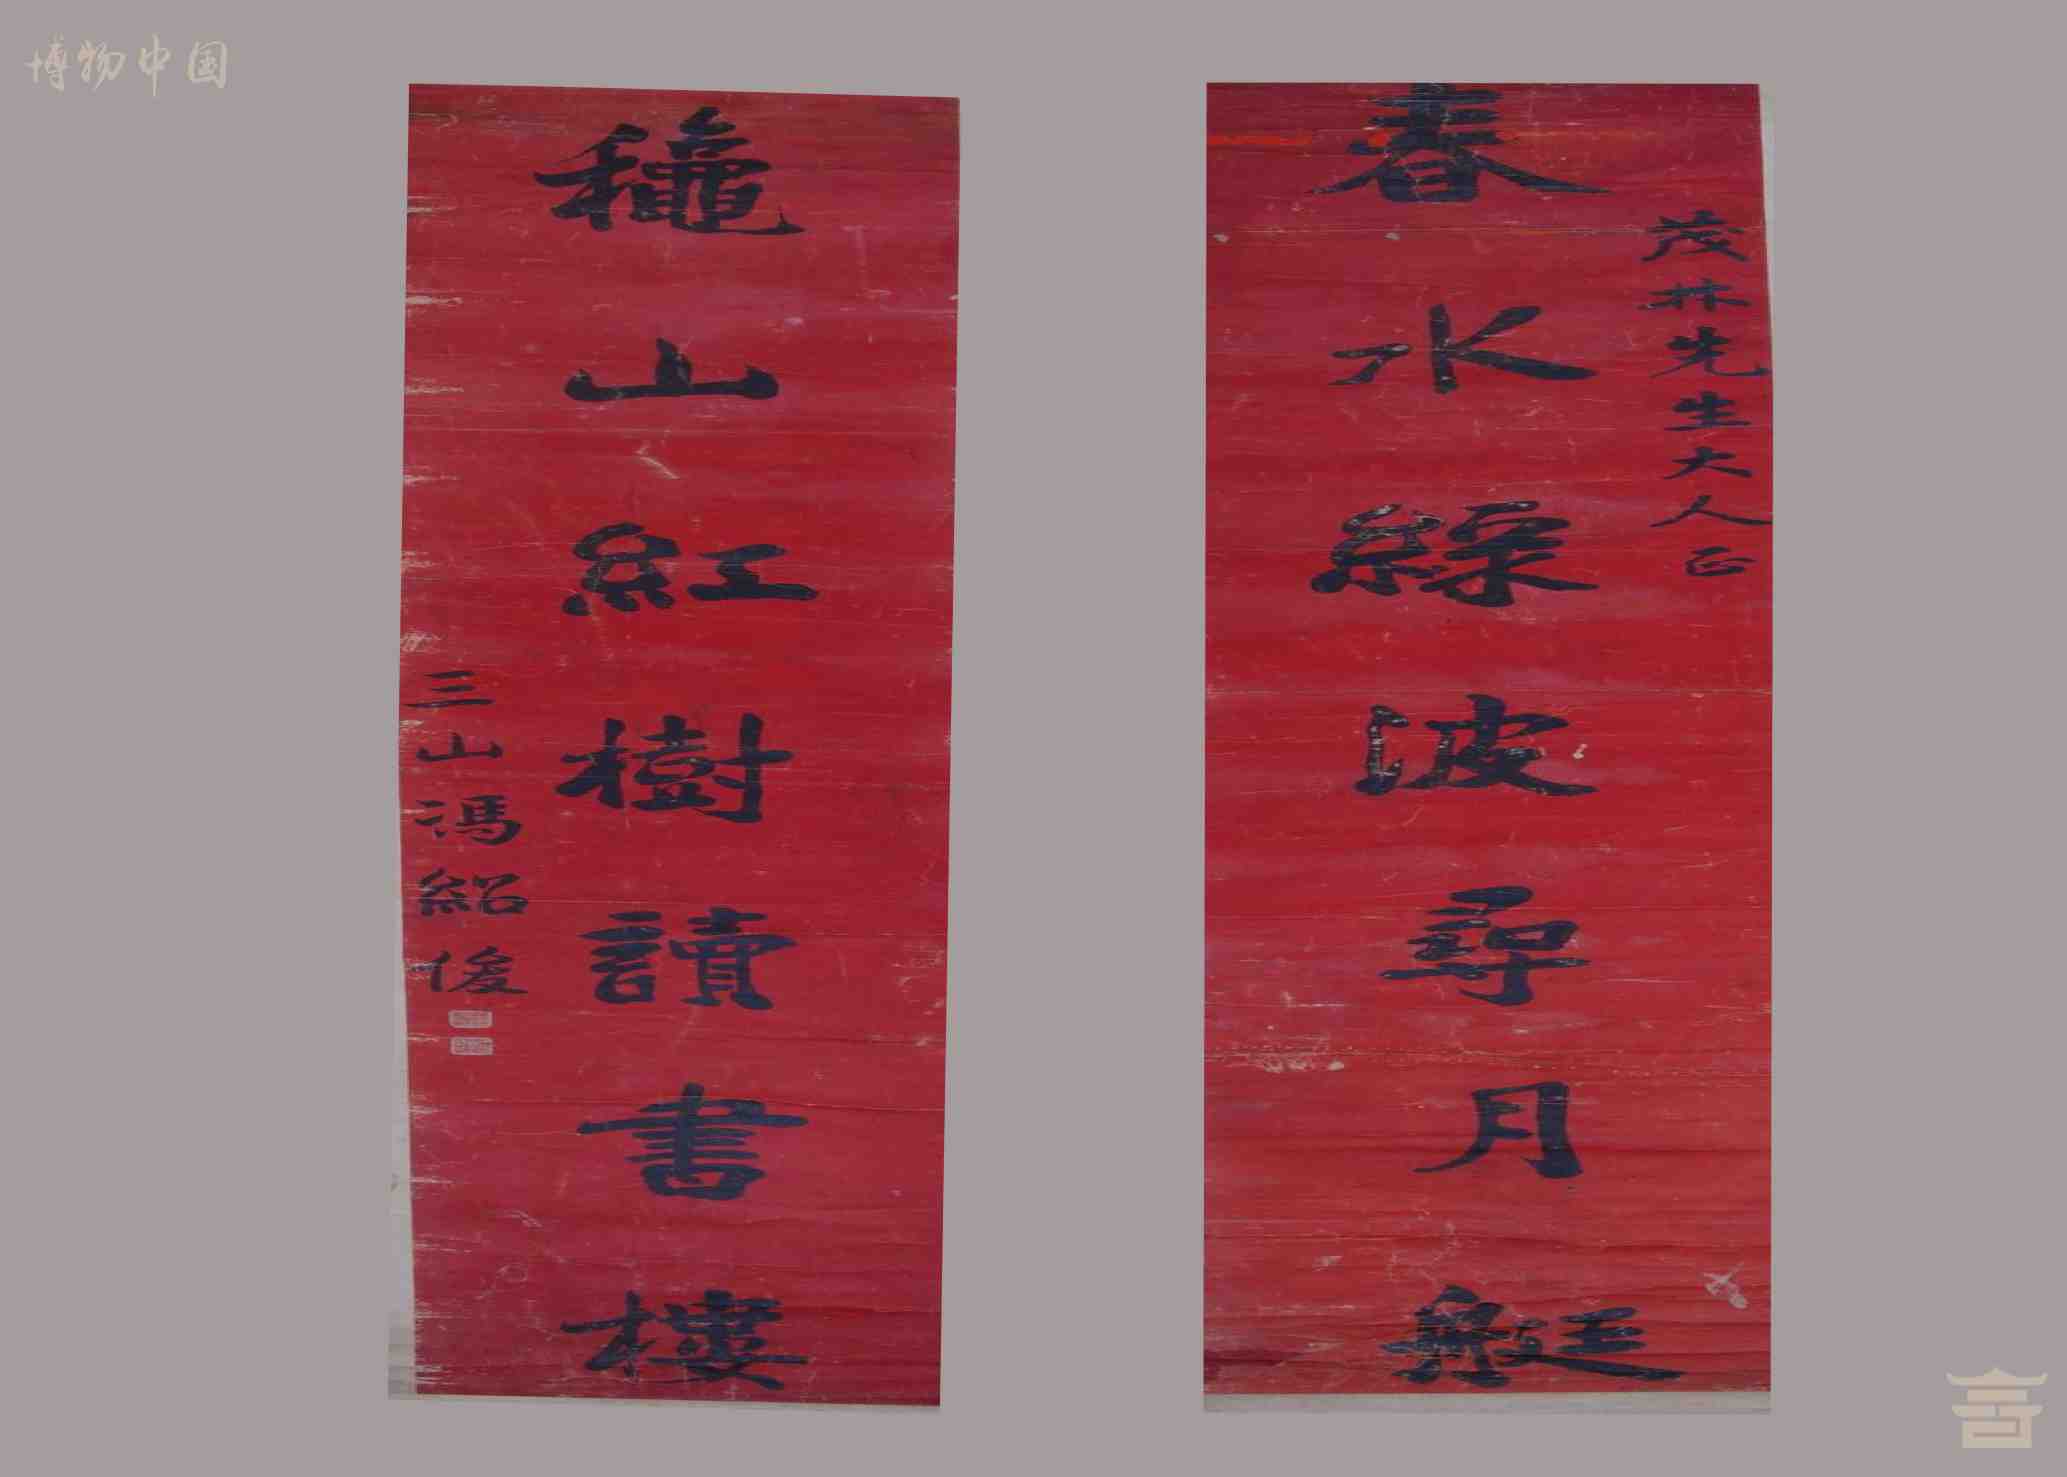 博物中国
茂林先生大人正
春水綠波尋月艇
穐山紅樹讀書樓
三山馮紹俊